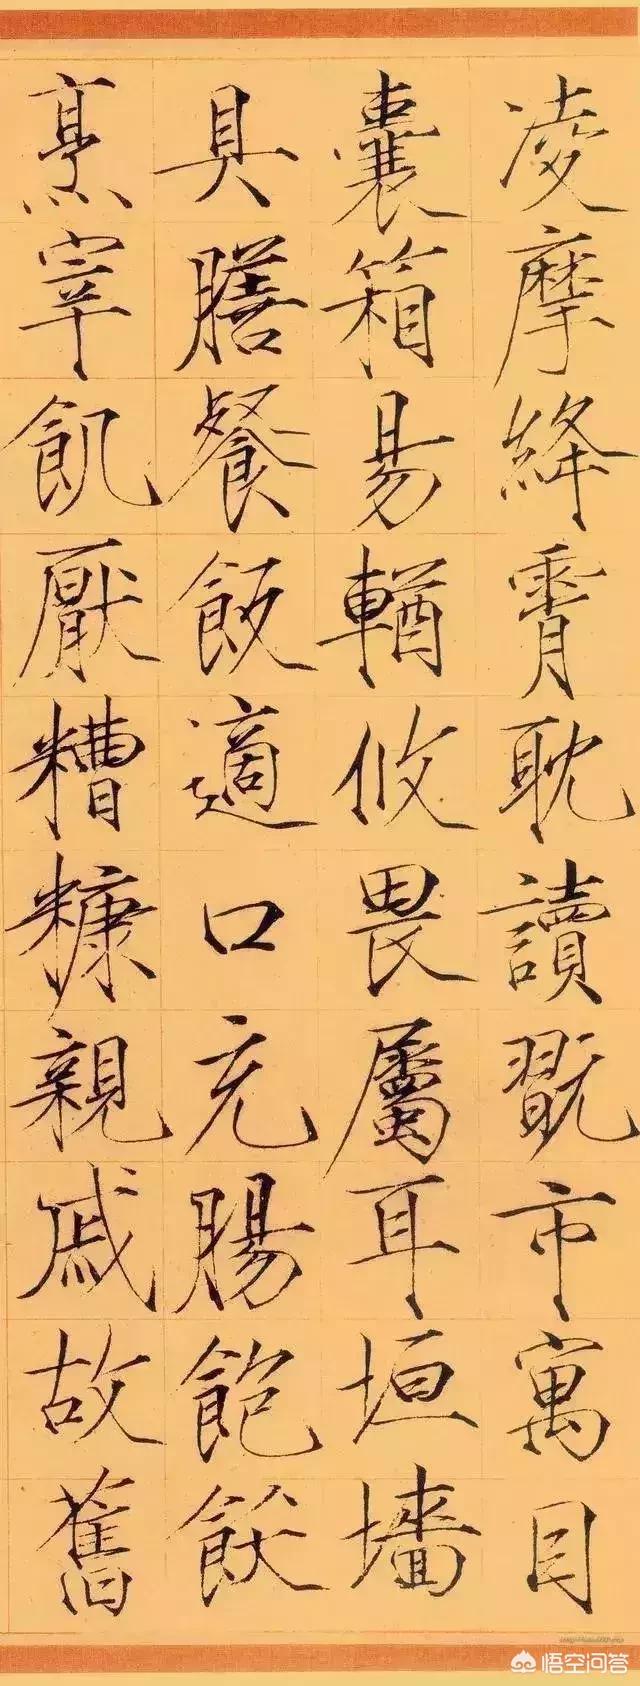 凌摩絳霄耽讀翫市寓目
囊箱易輶攸畏屬耳垣墻
具膳餐飯適口充腸飽飫
烹宰飢厭糟糠親戚故舊
悟空问答